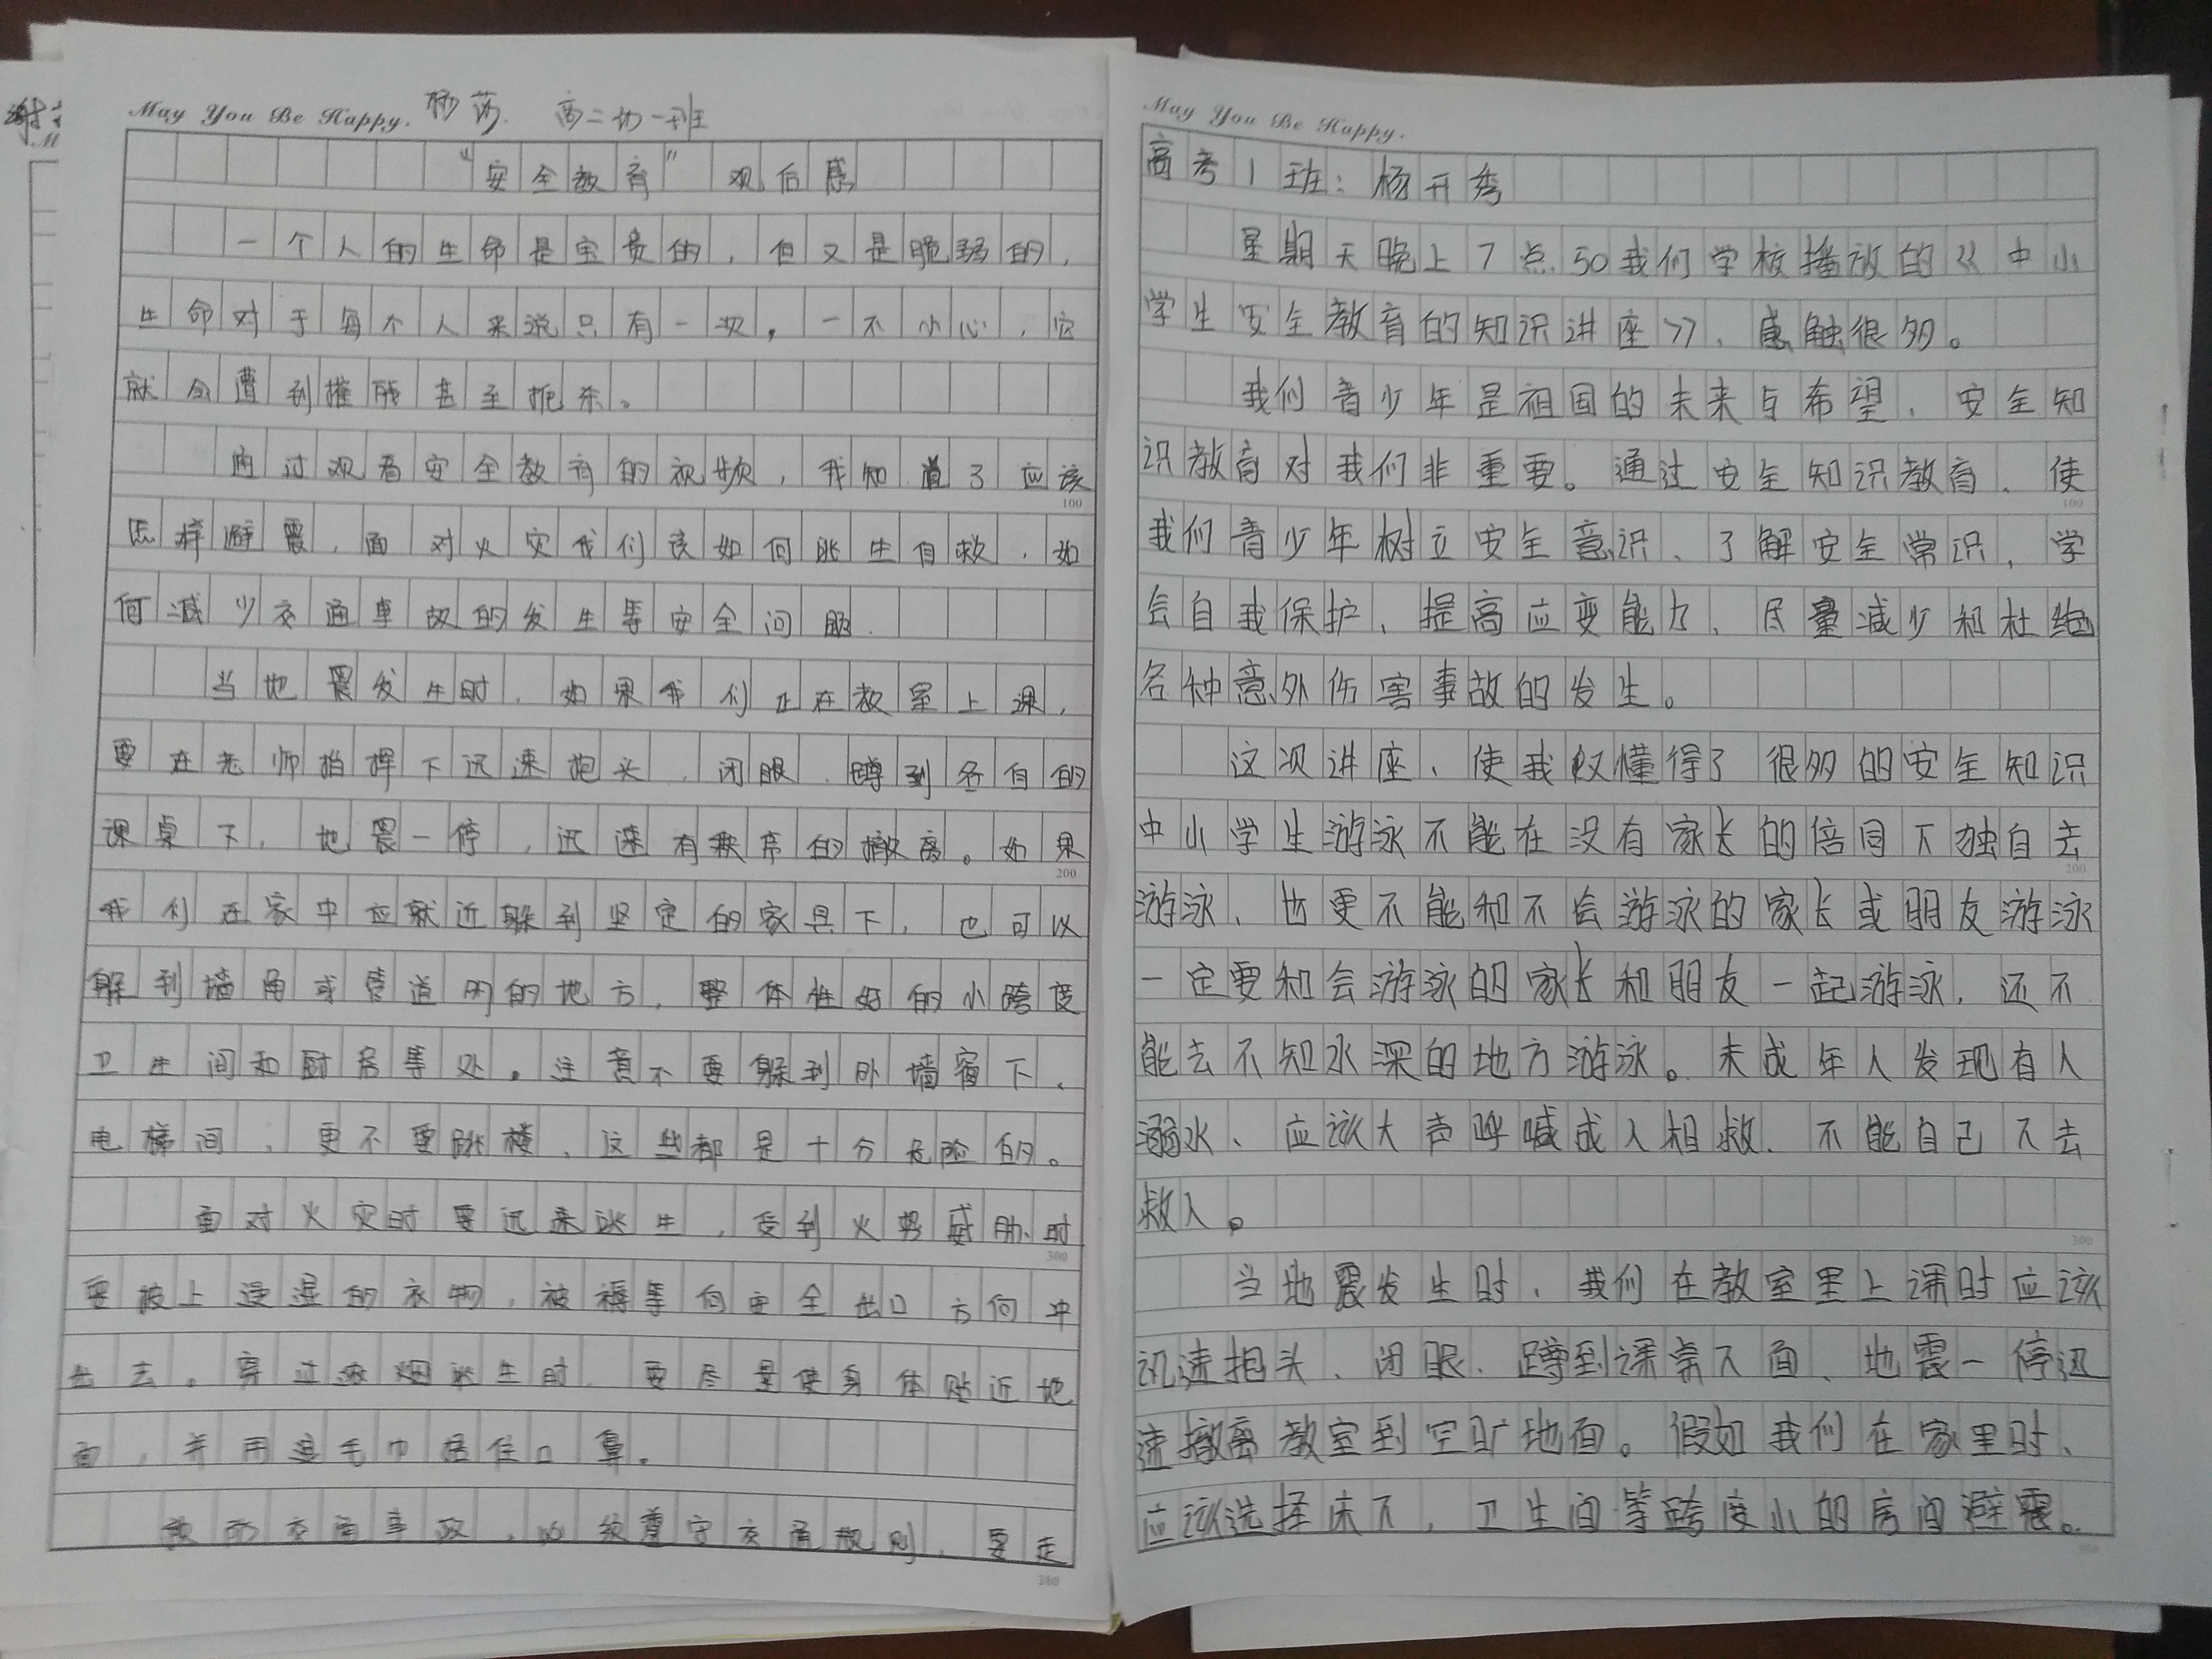 谢
May You Be Happy. 杨 高二 一班
"安全教育" 观后感
一个人的生命是宝贵的，但又是脆弱的，
生命对于每个人来说只有一次，一不小心，它
就会遭到摧残甚至扼杀。
通过观看安全教育的视频，我知道了应该
怎样避震，面对火灾我们该如何逃生自救，如
何减少交通事故的发生等安全问题.
当地震发生时，如果我们正在教室上课，
要在老师指挥下迅速抱头、闭眼、蹲到各自的
课桌下，地震一停，迅速有秩序的撤离。如果
我们在家中应就近躲到坚定的家具下，也可以
躲到墙角或管道 的地方，整体性好的小跨度
卫生间和厨房等处。注意不要躲到外墙窗下，
电梯间，更不要跳楼，这些都是十分危险的。
面对火灾时要迅速逃生，受到火势威胁时
要披上浸湿的衣物，被褥等向安全出口方向冲
出去。穿过浓烟逃生时，要尽量使身体贴近地
面，并用湿毛巾捂住口鼻。
交通事故，必须遵守交通规则，要走
100
200
300
380
May You Be Happy.
高考1班：杨开秀
星期天晚上7点50我们学校播放的《中小
学生安全教育的知识讲座》，感触很多。
我们青少年是祖国的未来与希望，安全知
识教育对我们非重要。通过安全知识教育，使
我们青少年树立安全意识、了解安全常识，学
会自我保护、提高应变能力、尽量减少和杜绝
各种意外伤害事故的发生。
这次讲座、使我 懂得了很多的安全知识
中小学生游泳不能在没有家长的倍同下独自去
游泳、也更不能和不会游泳的家长或朋友游泳
一定要和会游泳的家长和朋友一起游泳，还不
能去不知水深的地方游泳。未成年人发现有人
溺水、应该大声呼喊成人相救、不能自己下去
救人。
当地震发生时，我们在教室里上课时应该
迅速抱头、闭眼、蹲到课桌下面、地震一停迅
速撤离教室到空旷地面。假如我们在家里时、
应该选择床下，卫生间等跨度小的房间避震。
100
200
300
380